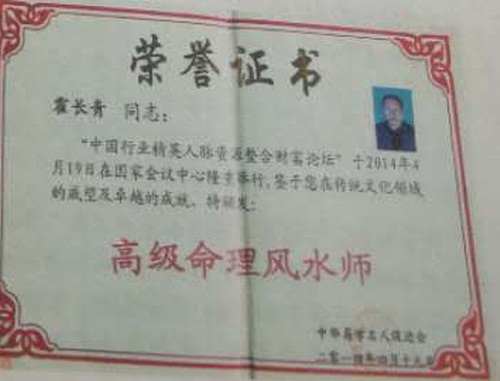 荣誉证书
霍长青 同志：
“中国行业精英人脉资源整合财富论坛”于2014年4
月19日在国家会议中心隆重举行，鉴于您在传统文化领域
的威望及卓越的成就、特颁发：
高级命理风水师
中华易学名人促进会
二零一四年四月十九日